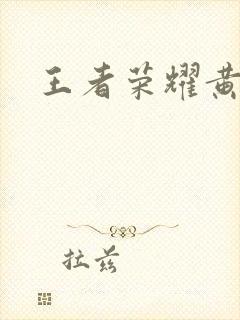 王者荣耀黄
拉兹